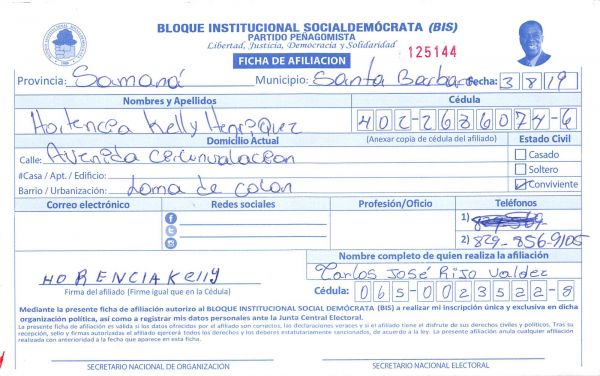 BLOQUE INSTITUCIONAL SOCIALDEMÓCRATA (BIS)
PARTIDO PEÑAGOMISTA
Libertad, Justicia, Democracia y Solidaridad
FICHA DE AFILIACION
125144
Provincia: Samaná Municipio: Santa Barbara Fecha: 3 8 19
Nombres y Apellidos Cédula
Hortencia Kelly Henriquez 402-2686074-6
Domicilio Actual (Anexar copia de cédula del afiliado) Estado Civil
Calle: Avenida circunvalacion Casado
#Casa / Apt. / Edificio: Soltero
Barrio / Urbanización: Loma de colon Conviviente
Correo electrónico Redes sociales Profesión/Oficio Teléfonos
1)
2) 829-856-9105
Nombre completo de quien realiza la afiliación
HORENCIA Kelly Carlos José Rijo Valdez
Firma del afiliado (Firme igual que en la Cédula) Cédula: 065-0023522-8
Mediante la presente ficha de afiliación autorizo al BLOQUE INSTITUCIONAL SOCIAL DEMÓCRATA (BIS) a realizar mi inscripción única y exclusiva en dicha
organización política, así como a registrar mis datos personales ante la Junta Central Electoral.
La presente ficha de afiliación es válida si los datos ofrecidos por el afiliado son correctos, las declaraciones veraces y si el afiliado tiene el disfrute de sus derechos civiles y políticos. Tras su
recepción, sello y firmas autorizadas el afiliado ejercerá todos los derechos y los deberes estatutariamente sancionados, de acuerdo a la ley. La presente afiliación anula cualquier afiliación
realizada con anterioridad a la fecha que aparece en esta ficha.
SECRETARIO NACIONAL DE ORGANIZACIÓN SECRETARIO NACIONAL ELECTORAL